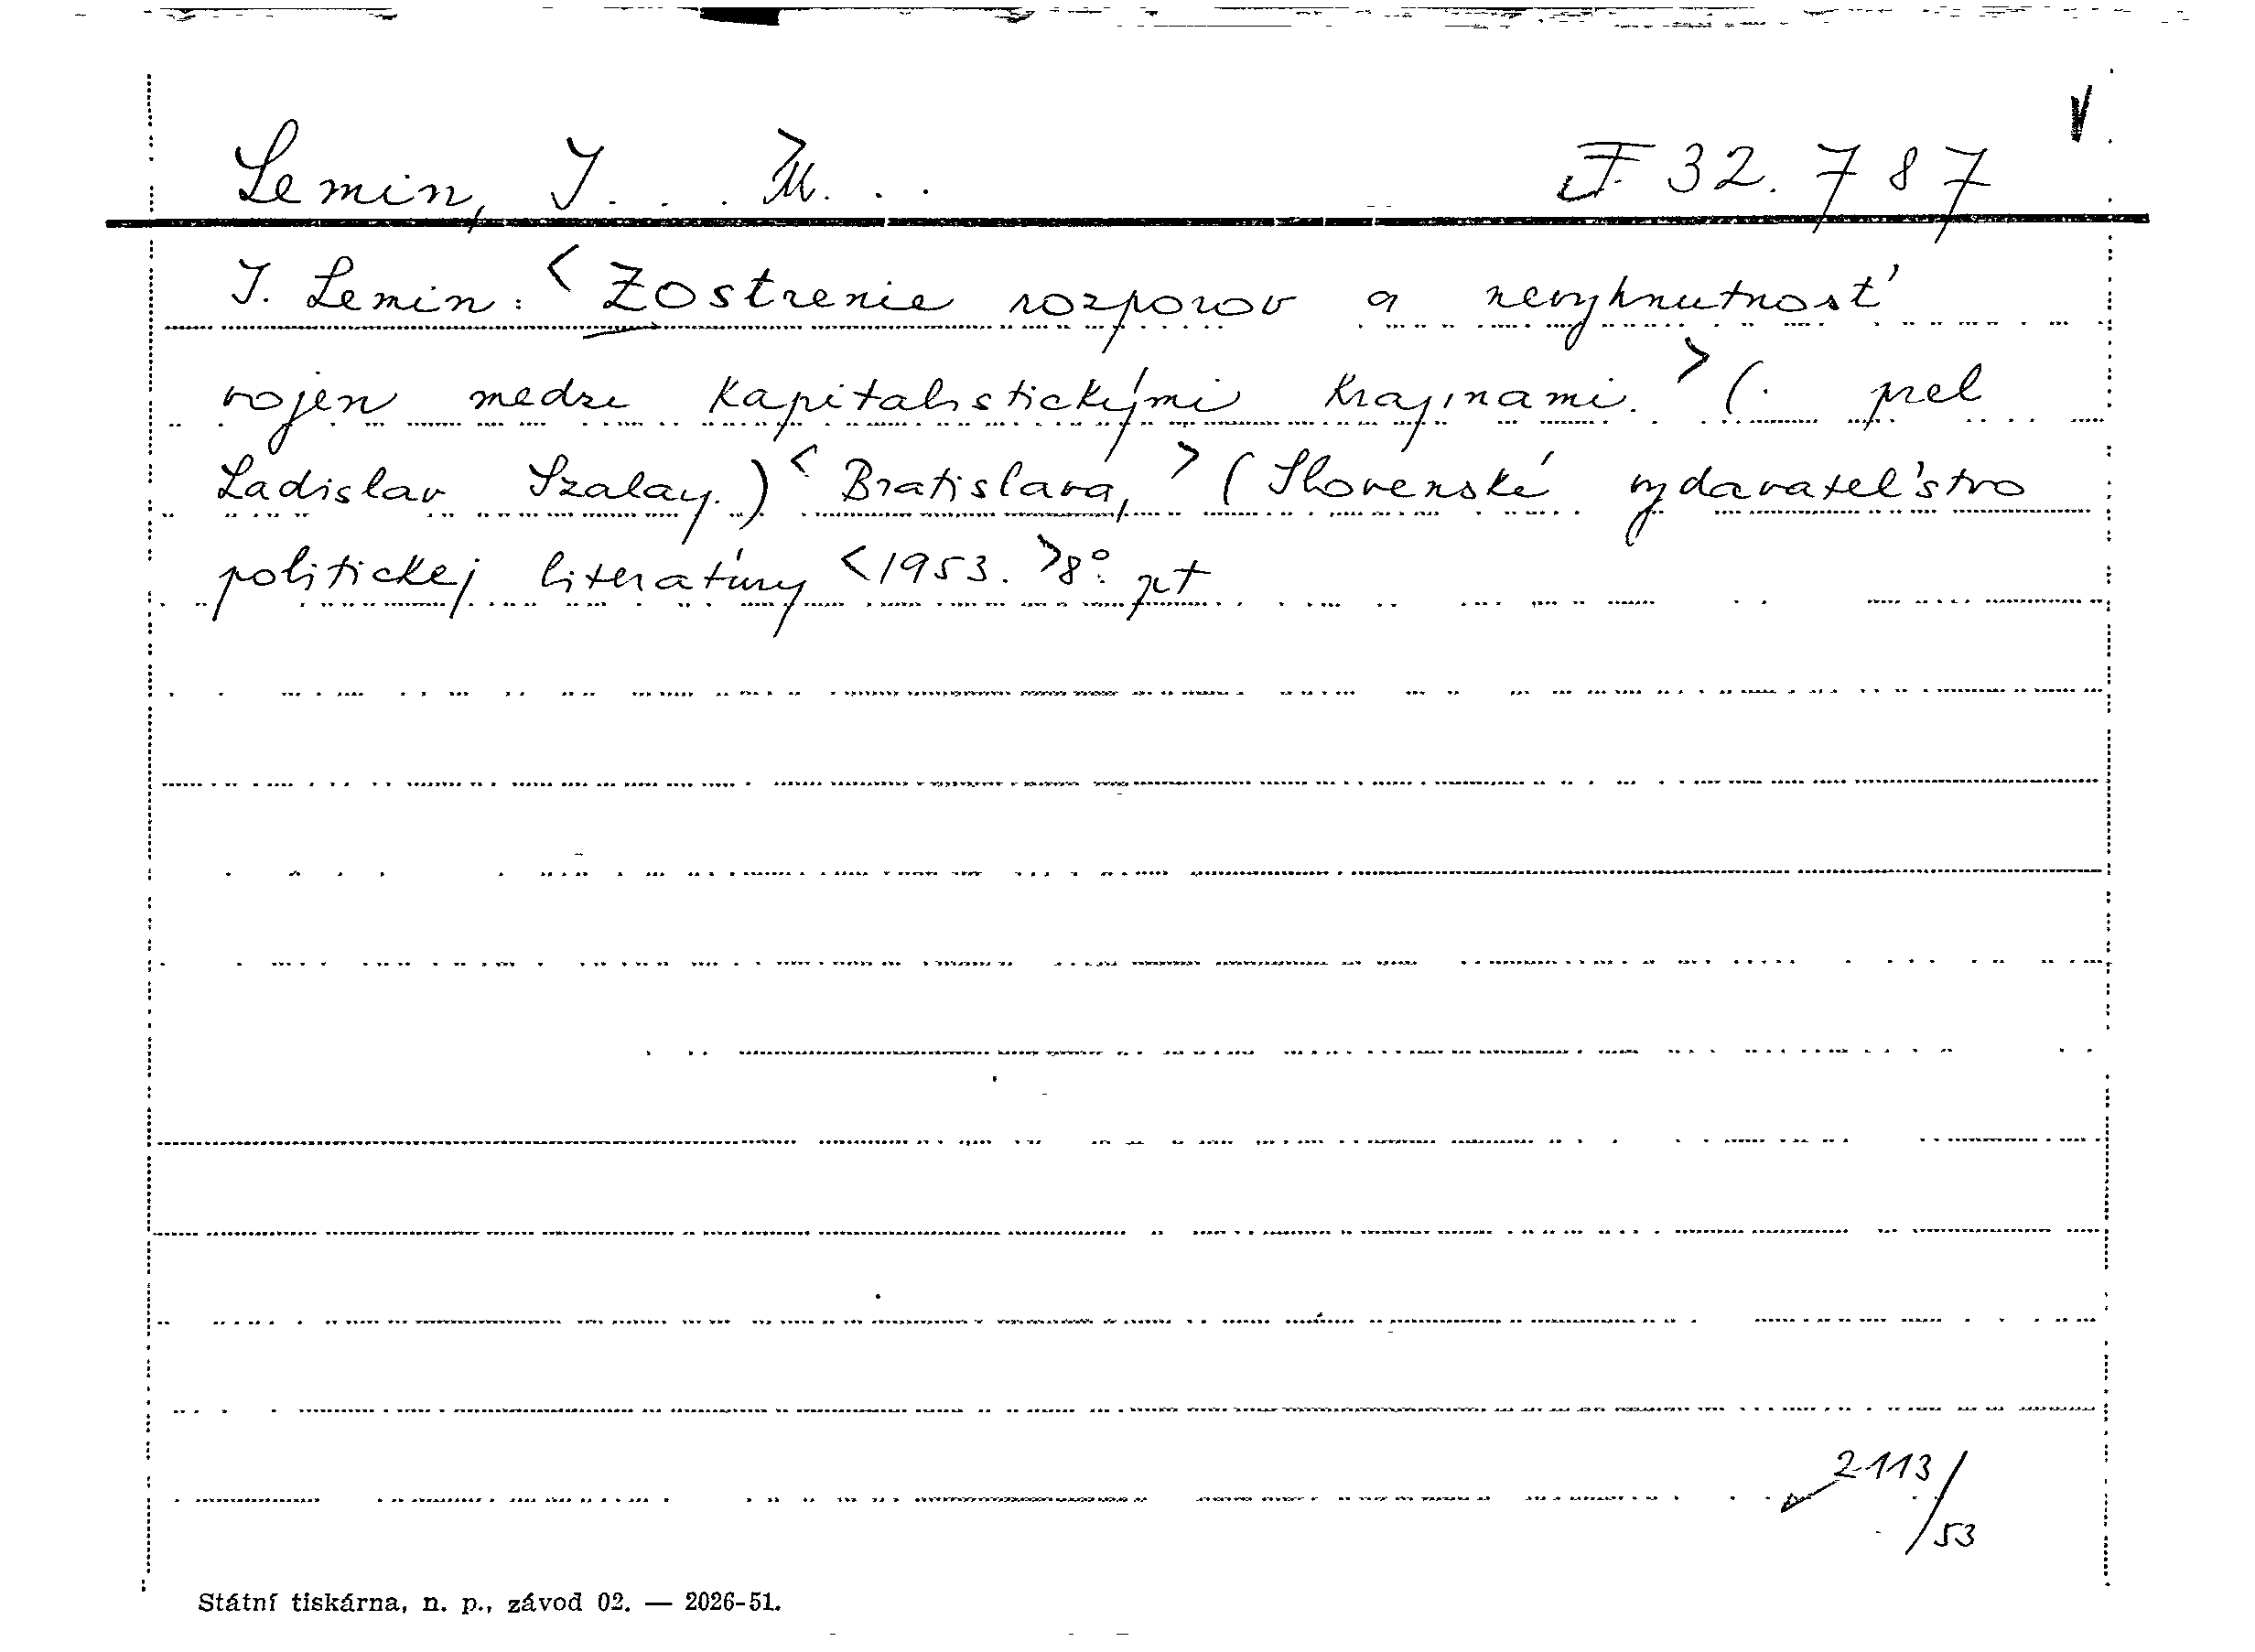 Lemin, I. . . M. . . F 32.787
I. Lemin: <Zostrenie rozporov a nevyhnutnosť
vojen medzi kapitalistickými krajinami.> (. prel
Ladislav Szalay.) <Bratislava,> (Slovenské vydavateľstvo
politickej literatúry <1953. >8°. pt
2113/53
Státní tiskárna, n. p., závod 02. — 2026-51.